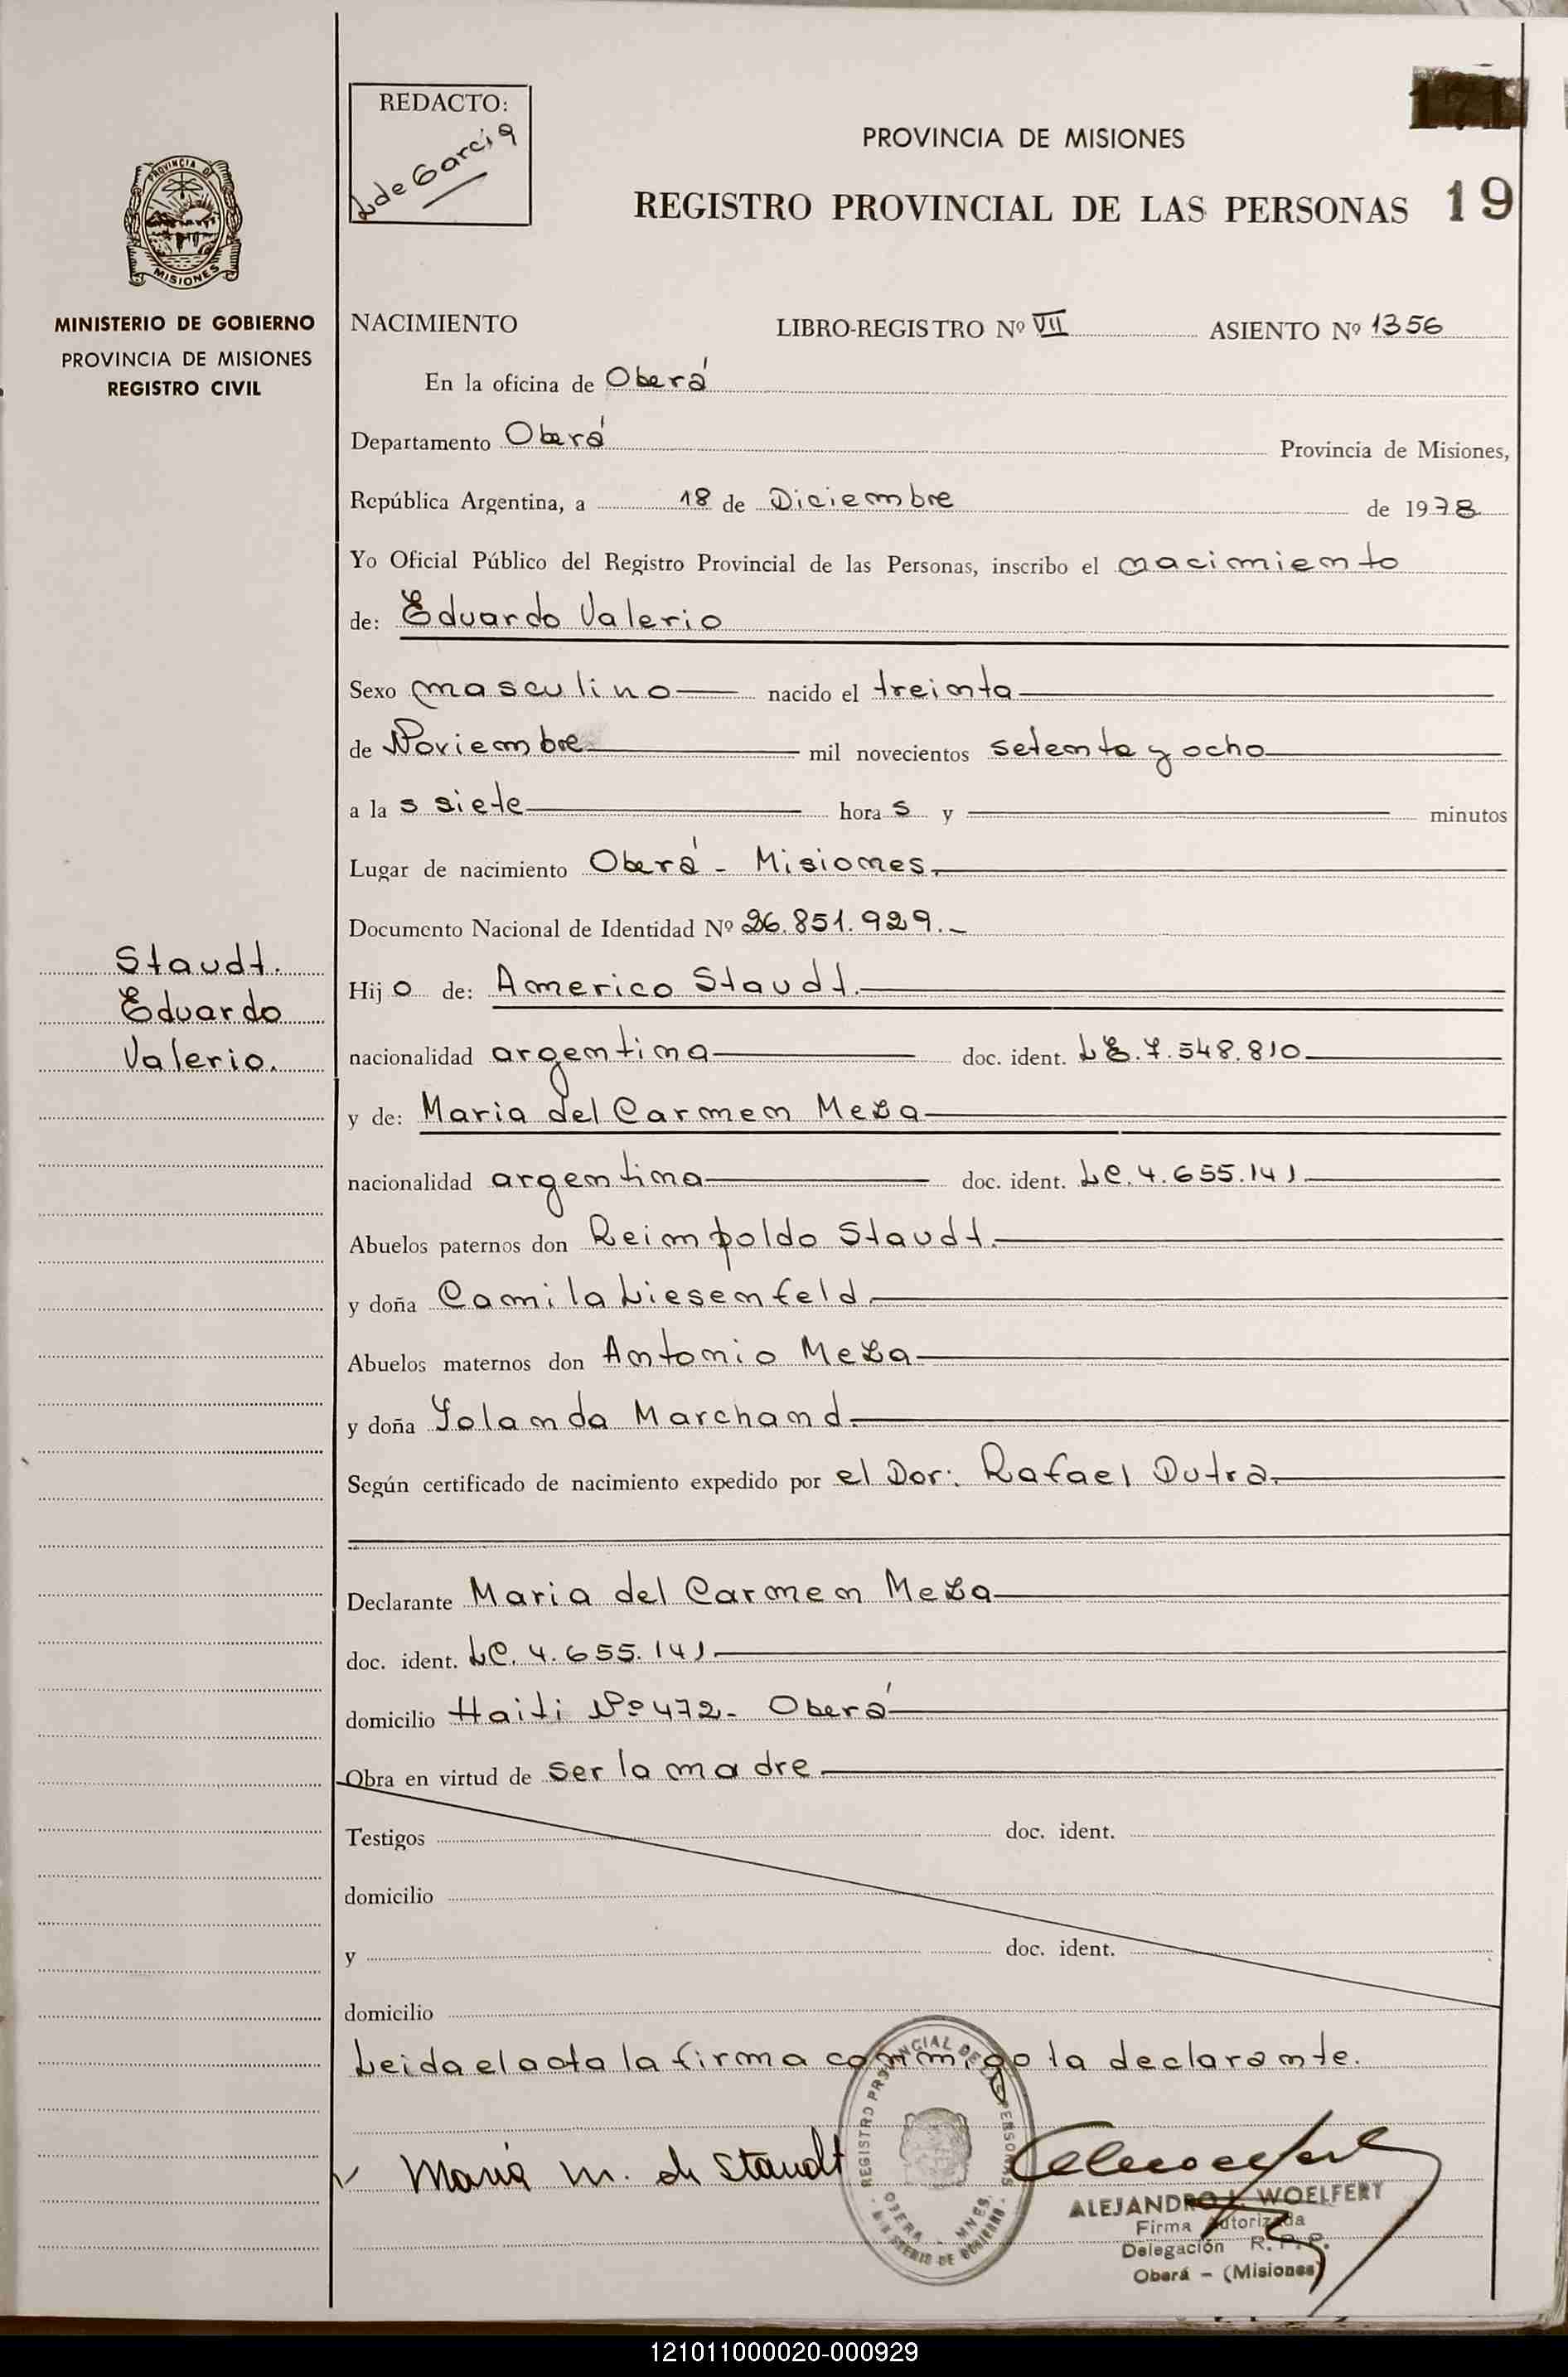 REDACTO:
L de Garcia
171
PROVINCIA DE MISIONES
REGISTRO PROVINCIAL DE LAS PERSONAS 19
PROVINCIA DE
MISIONES
MINISTERIO DE GOBIERNO
PROVINCIA DE MISIONES
REGISTRO CIVIL
NACIMIENTO LIBRO-REGISTRO Nº VII ASIENTO Nº 1356
En la oficina de Oberá
Departamento Oberá Provincia de Misiones,
República Argentina, a 18 de Diciembre de 1978
Yo Oficial Público del Registro Provincial de las Personas, inscribo el nacimiento
de: Eduardo Valerio
Sexo masculino nacido el treinta
de Noviembre mil novecientos setenta y ocho
a la s siete hora s y minutos
Lugar de nacimiento Oberá - Misiones.
Documento Nacional de Identidad Nº 26.851.929.-
Staudt.
Eduardo
Valerio.
Hij o de: Americo Staudt.
nacionalidad argentina doc. ident. LE.7.548.810
y de: Maria del Carmen Meza
nacionalidad argentina doc. ident. LC.4.655.141
Abuelos paternos don Reimpoldo Staudt.
y doña Camila Liesenfeld.
Abuelos maternos don Antonio Meza
y doña Yolanda Marchand.
Según certificado de nacimiento expedido por el Dor: Rafael Dutra.
Declarante Maria del Carmen Meza
doc. ident. LC. 4.655.141
domicilio Haiti Nº 472- Oberá
Obra en virtud de ser la madre.
Testigos doc. ident.
domicilio
y doc. ident.
domicilio
Leida el acta la firma conmigo la declarante.
Maria M. de Staudt
REGISTRO PROVINCIAL DE LAS PERSONAS
OBERA - MNES.
MINISTERIO DE GOBIERNO
ALEJANDRO L. WOELFERT
Firma Autorizada
Delegación R. P. P.
Oberá - (Misiones)
121011000020-000929